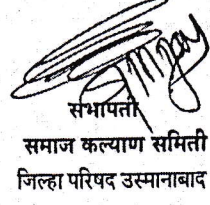 सभापती
समाज कल्याण समिती
जिल्हा परिषद उस्मानाबाद